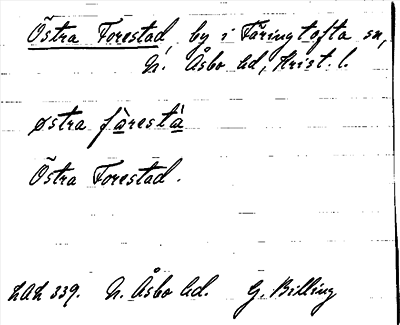 Östra Forestad, by i Färingtofta sn,
N. Åsbo hd, Krist. l.
østra få̀restà
Östra Forestad.
LAL 339. N. Åsbo hd. G. Billing